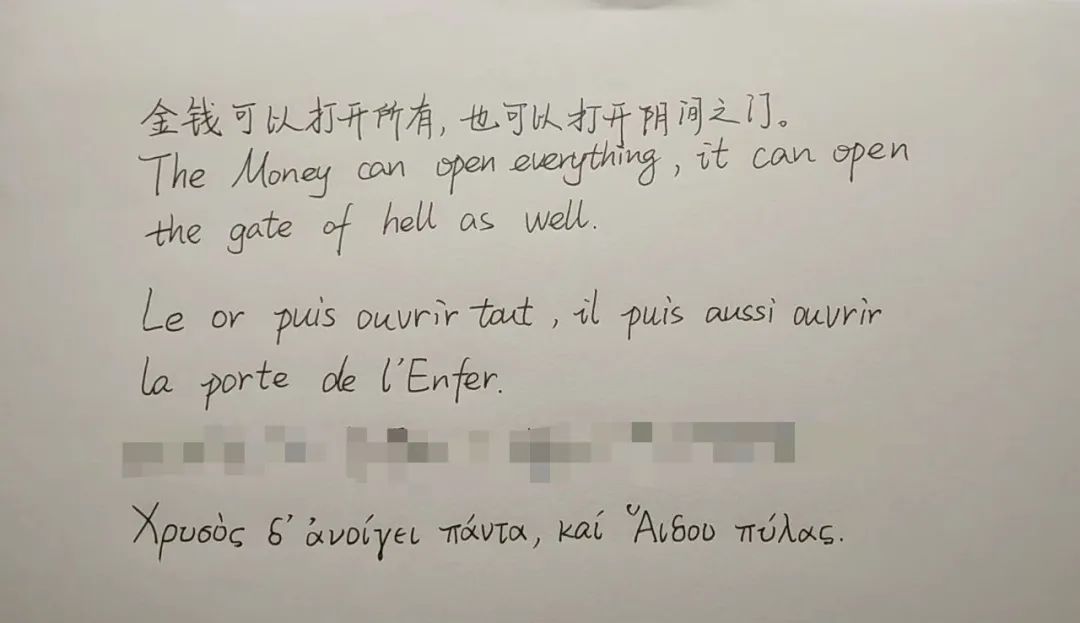 金钱可以打开所有,也可以打开阴间之门。
The Money can open everything, it can open
the gate of hell as well.
Le or puis ouvrir tout, il puis aussi ouvrir
la porte de l'Enfer.
Χρυσὸς δ' ἀνοίγει πάντα, καί Ἅιδου πύλας.